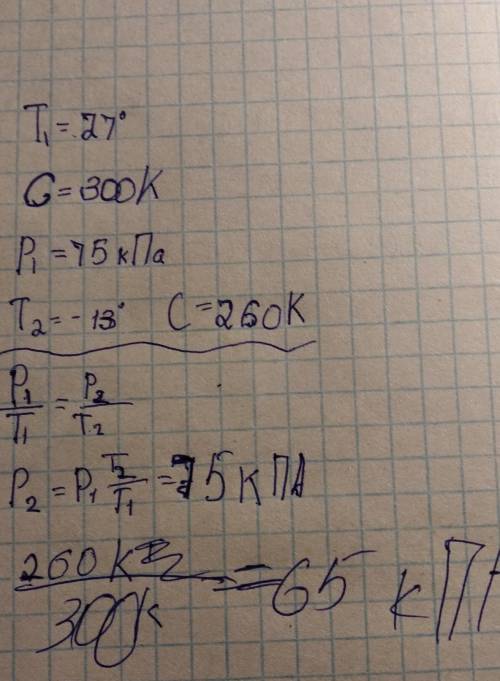 T₁ = 27°
C = 300K
P₁ = 75 кПа
T₂ = -13° C = 260K
P₁/T₁ = P₂/T₂
P₂ = P₁ T₂/T₁ = 75 кПа
260K/300K = 65 кП